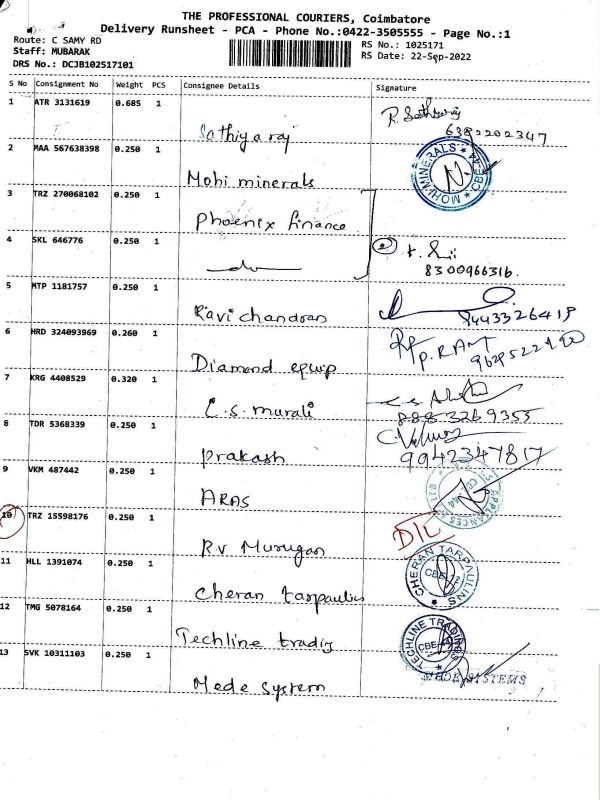 THE PROFESSIONAL COURIERS, Coimbatore
Delivery Runsheet - PCA - Phone No.:0422-3505555 - Page No.:1
Route: C SAMY RD
Staff: MUBARAK
DRS No.: DCJB102517101
RS No.: 1025171
RS Date: 22-Sep-2022
S No Consignment No Weight PCS Consignee Details Signature
1 ATR 3131619 0.685 1
Sathiyaraj R. Sathiyaraj
6382202347
2 MAA 567638398 0.250 1
Mohi minerals MOHI MINERALS ★ CBE-44 ★
3 TRZ 270068102 0.250 1
Phoenix finance
4 SKL 646776 0.250 1
8300966316.
5 MTP 1181757 0.250 1
Ravichandran 9443326419
6 HRD 324093969 0.260 1
P. RAM
Diamond equip
7 KRG 4408529 0.320 1
C.S. murali 8883269355
8 TDR 5368339 0.250 1
prakash 9942347817
9 VKM 487442 0.250 1
ARAS APPLIANCES
10 TRZ 15598176 0.250 1
R.V Murugan D/L
11 HLL 1391074 0.250 1
Cheran tarpaulins CHERAN TARPAULINS CBE
12 TMG 5078164 0.250 1
Techline trading TECHLINE TRADINGS CBE
13 SVK 10311103 0.250 1
Mede system MEDE SYSTEMS